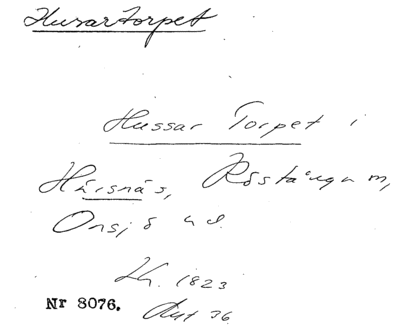 Husartorpet
Hussar Torpet i
Härsnäs, Röstånga m,
Onsjö hd.
Lh. 1823
Nr 8076.
Akt 36